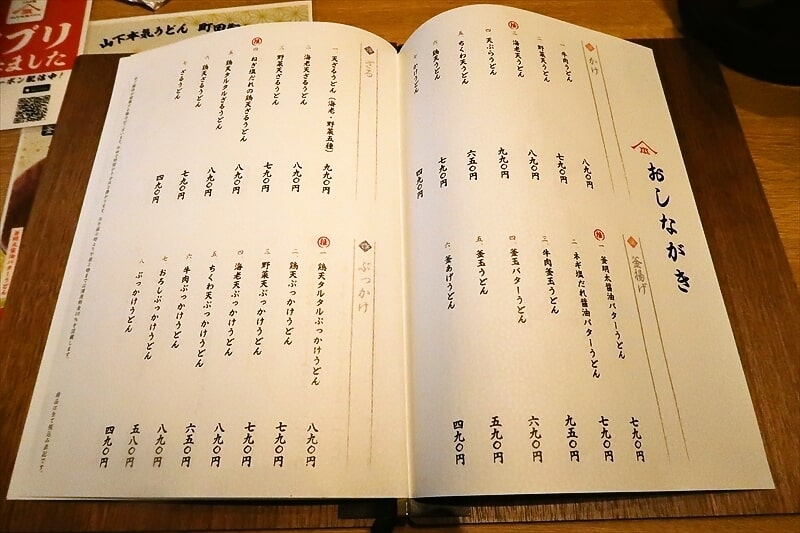 おしながき
かけ
一 牛肉うどん 八九〇円
二 野菜天うどん 七九〇円
推 三 海老天うどん 八九〇円
四 天ぷらうどん 九九〇円
五 ちくわ天うどん 六五〇円
六 鶏天うどん 七九〇円
七 かけうどん 四九〇円
釜揚げ
推 一 釜明太醤油バターうどん 七九〇円
二 ネギ塩だれ醤油バターうどん 七九〇円
三 牛肉釜玉うどん 九五〇円
四 釜玉バターうどん 六九〇円
五 釜玉うどん 五九〇円
六 釜あげうどん 四九〇円
ざる
一 天ざるうどん（海老・野菜五種） 九九〇円
二 海老天ざるうどん 八九〇円
三 野菜天ざるうどん 七九〇円
推 四 ねぎ塩だれの鶏天ざるうどん 八九〇円
五 鶏天タルタルざるうどん 八九〇円
六 鶏天ざるうどん 七九〇円
七 ざるうどん 四九〇円
ぶっかけ
推 一 鶏天タルタルぶっかけうどん 八九〇円
二 鶏天ぶっかけうどん 七九〇円
三 野菜天ぶっかけうどん 七九〇円
四 海老天ぶっかけうどん 八九〇円
五 ちくわ天ぶっかけうどん 六五〇円
六 牛肉ぶっかけうどん 八九〇円
七 おろしぶっかけうどん 五八〇円
八 ぶっかけうどん 四九〇円
商品は全て税込み表記です。
山下本気うどん 町田
プリ
ました
ーポン配信中！